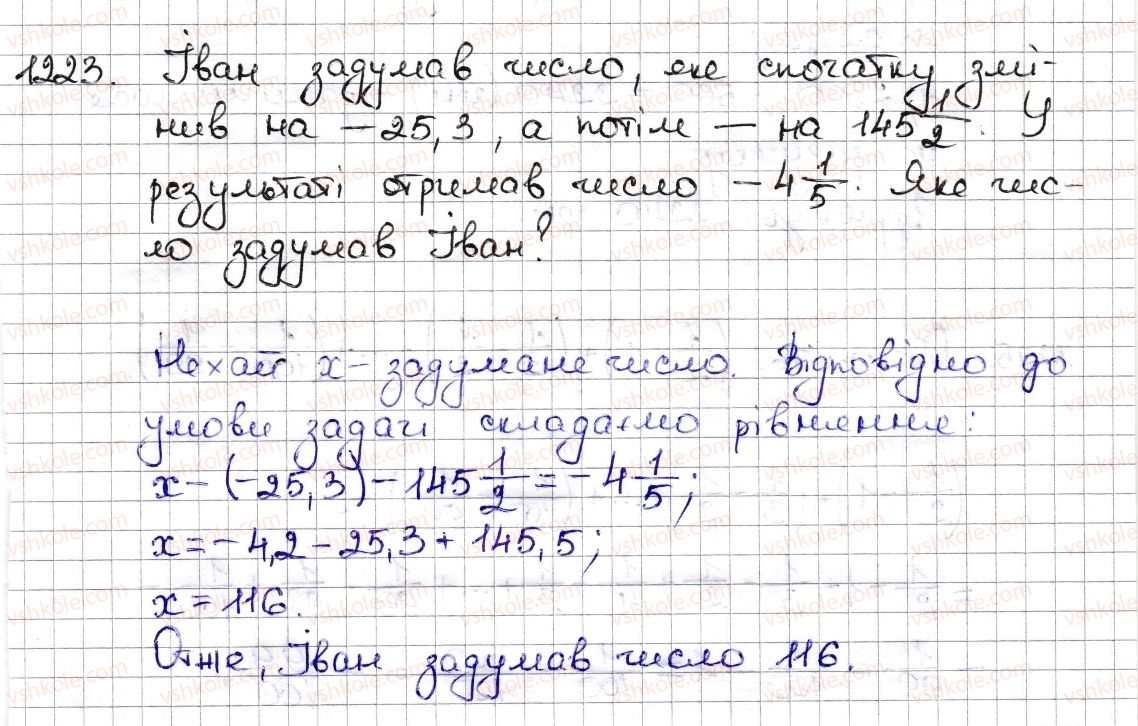 1223. Іван задумав число, яке спочатку змі-
нив на -25,3, а потім - на 145 1/2. У
результаті отримав число -4 1/5. Яке чис-
ло задумав Іван?
Нехай x - задумане число. Відповідно до
умови задачі складаємо рівняння:
x - (-25,3) - 145 1/2 = -4 1/5;
x = -4,2 - 25,3 + 145,5;
x = 116.
Отже, Іван задумав число 116.